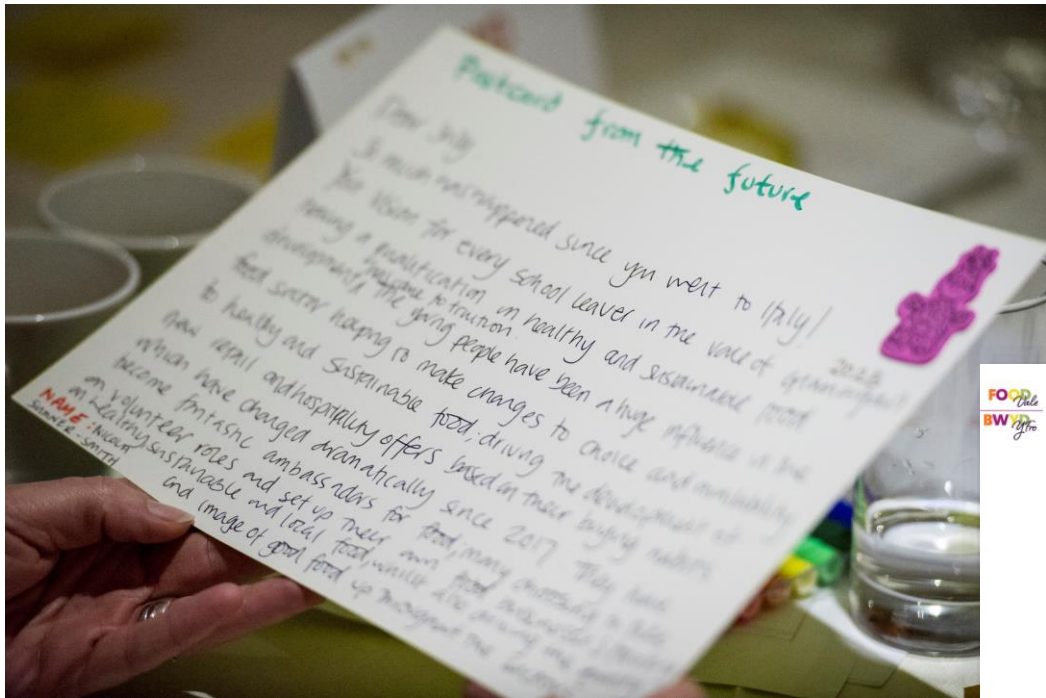 Postcard from the future
Dear July
So much has happened since you went to Italy!
2028
You vision for every school leaver in the vale of
having a qualification in healthy and sustainable food
development
The young people have been a huge influence in the
food sector helping to make changes to choice and availability
to healthy and sustainable food, driving the development of
new retail and hospitality offers based on their buying
which have changed dramatically since 2017. They have
become fantastic ambassadors for food, many choosing to
on volunteer roles and set up their own food businesses
on healthy sustainable and local food, whilst also
and image of good food up throughout the
NAME: Nicola
SUMNER-SMITH
FOOD
Vale
BWYD
Y Fro